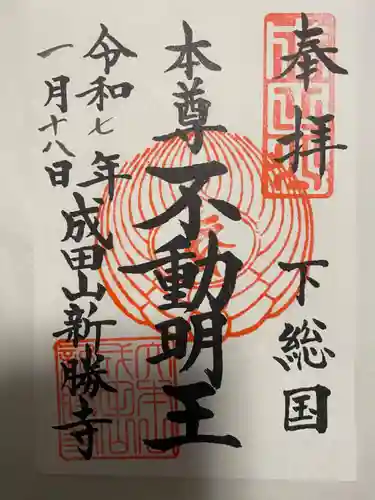 奉拝
下総国
本尊不動明王
令和七年
一月十八日
成田山新勝寺